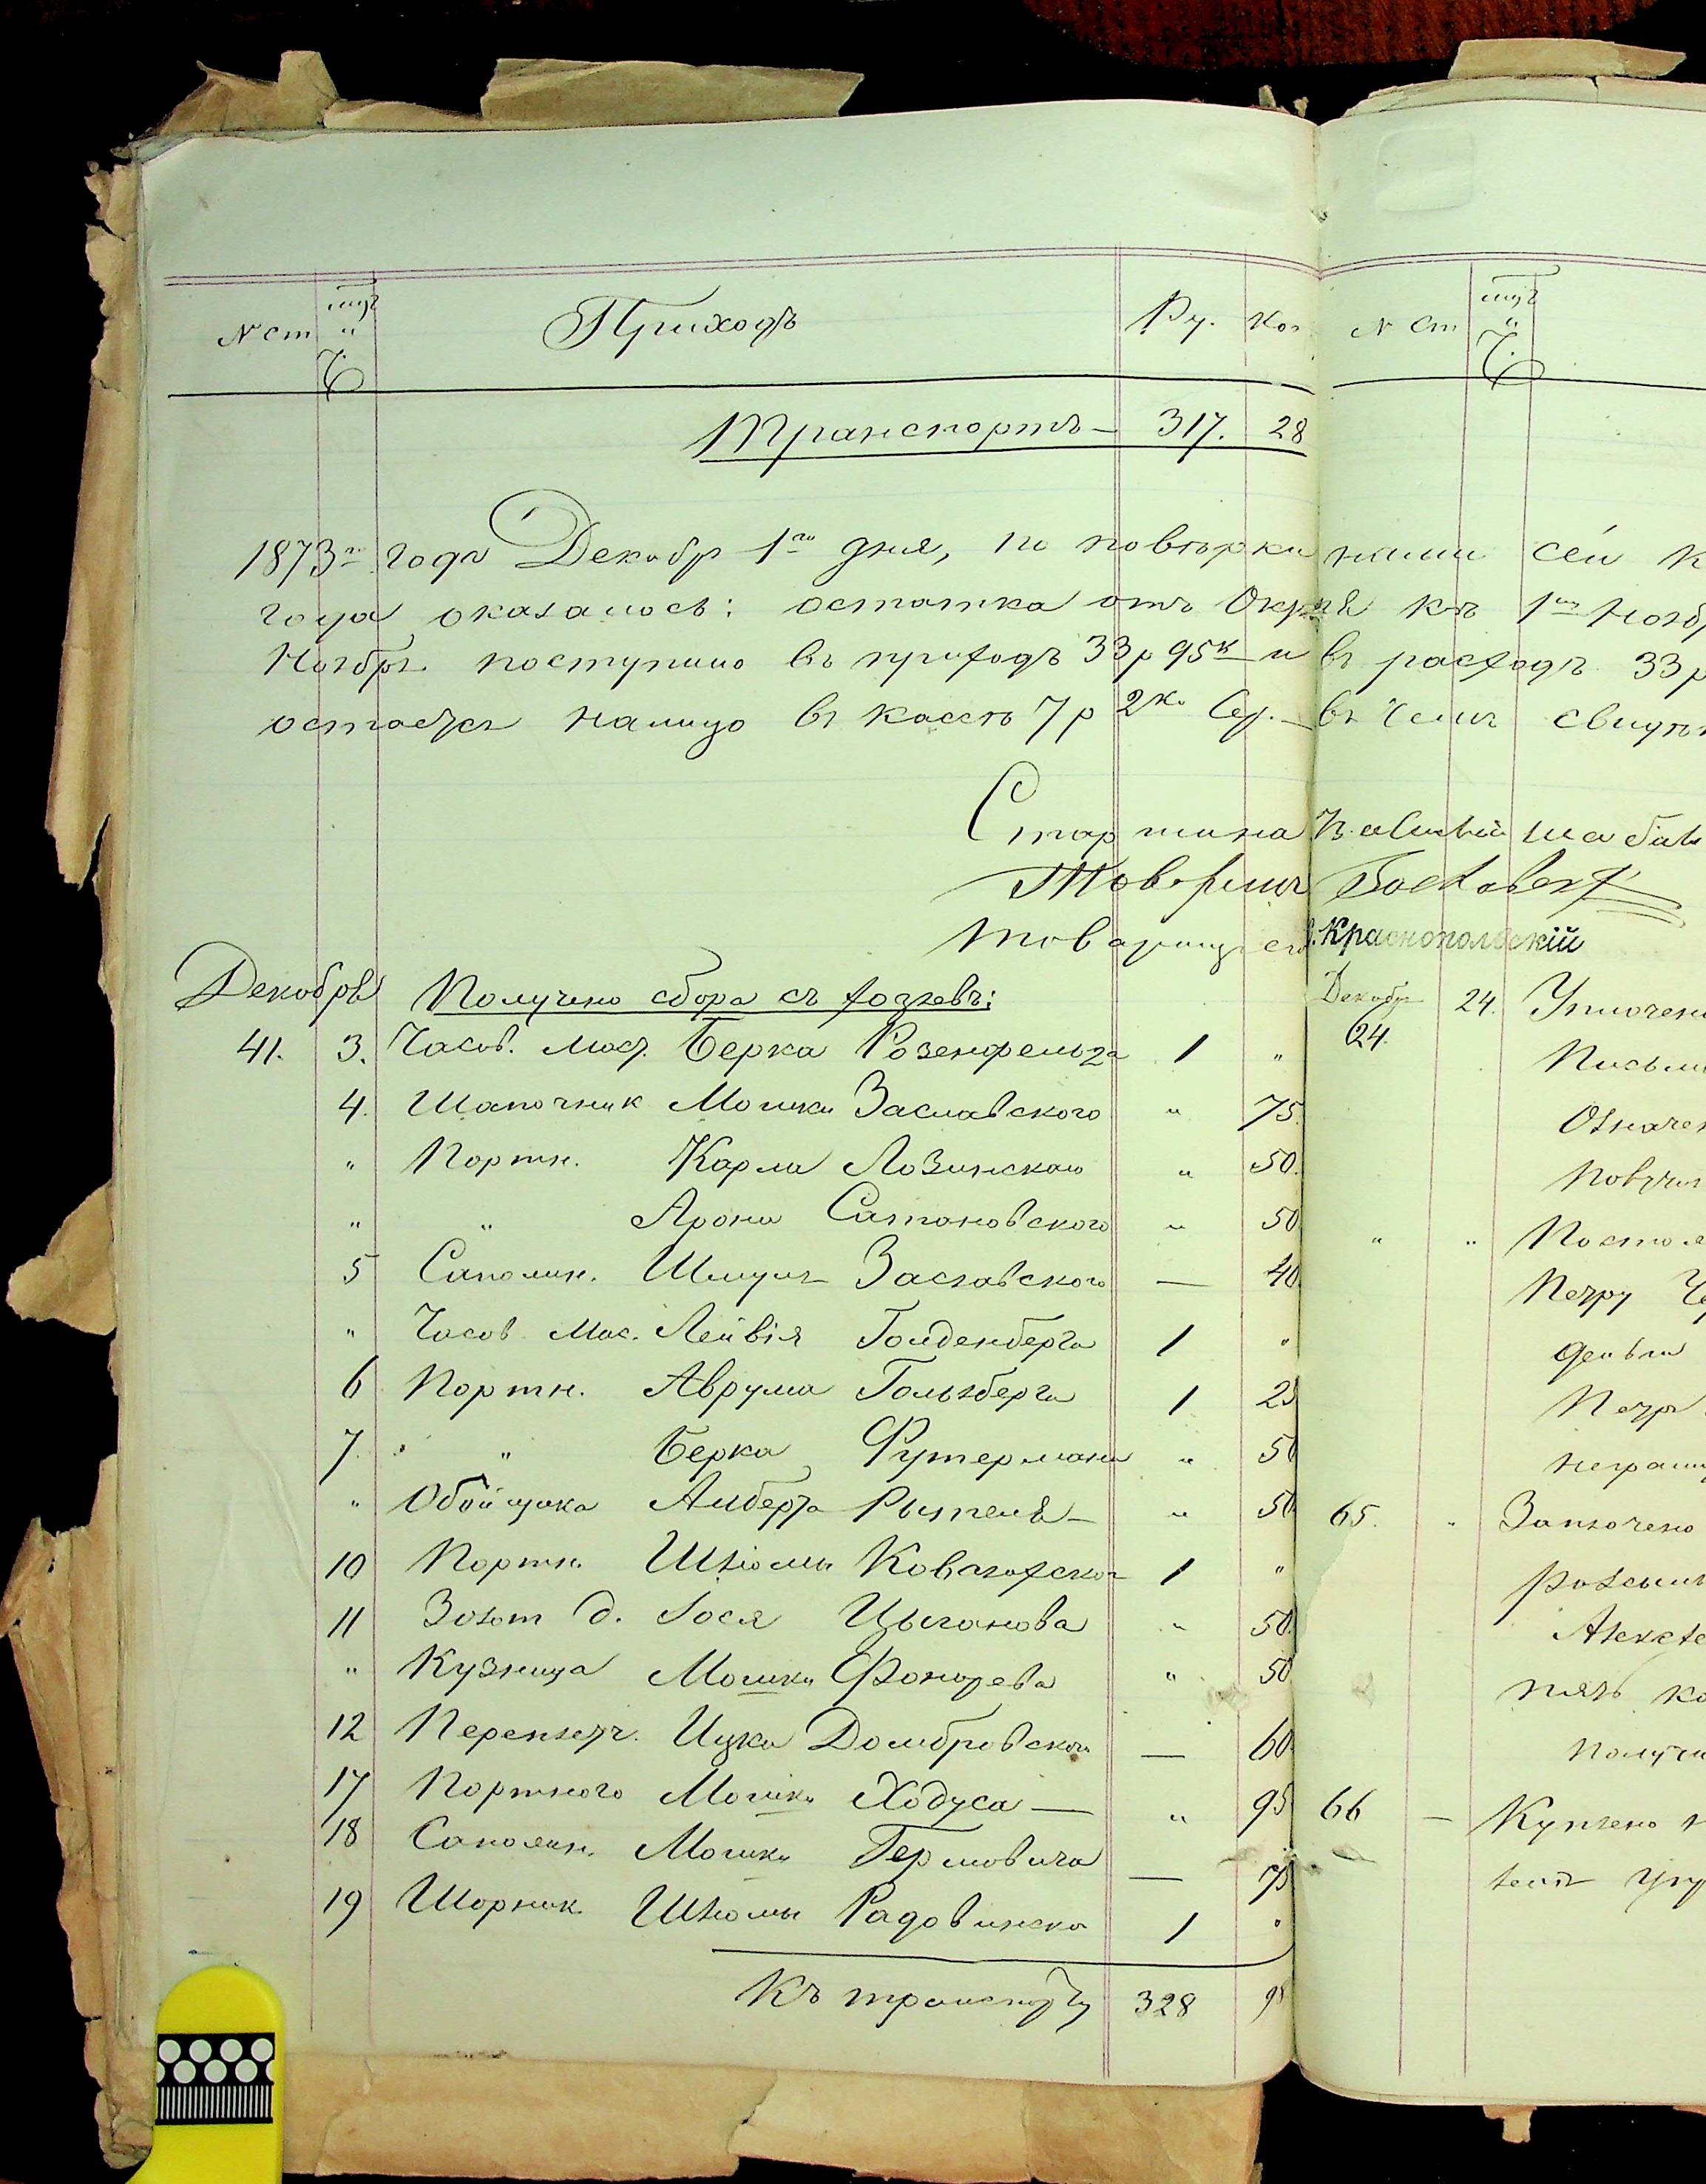 N ст мцъ и Ч. Приходъ Ру. Коп. N Ст мцъ и Ч.
Транспортъ — 317. 28
1873го года Декабр 1го дня, по повѣрки нами сей К
года оказалось: остатка отъ Окр къ 1му Ноябр
Ноября поступило въ приходъ 33р 95к и въ расходъ 33р
остается налицо въ кассѣ 7р 2к. Сер. — въ чемъ свидѣт
Старшина
Товарищъ
товарищ Краснопольскій
Декабрь Получено сбора съ хозяевъ:
41. 3. Часов. Маст. Берка Розенфельда 1 „
4. Шапочник Мошки Заславского „ 75.
„ Портн. Карла Лозинского „ 50.
„ „ Арона Сатановского „ 50.
5 Сапожн. Шмуля Заславского — 40.
„ Часов Мас. Лейвія Голденберга 1 „
6 Портн. Аврума Гольдберга 1 25
7. „ „ Берка Футермана „ 50
„ Обойщика Алберта „ 50
10 Портн. Шломы 1 „
11 Золот д. Іося Цыганова „ 50.
„ Кузнеца Мошки Фонарева „ 50
12 Переплетч. Ицка Домбровского — 60.
17 Портного Мошки Ходуса — „ 95
18 Сапожн. Мошки — 75
19 Шорник Шломы Радовинско 1 „
Къ транспорту 328 98
Декабр 24. Уплочено
24. Письм
Означен
Получил
„ „
Петру Че
деньги
Петр
неграм
65. „ Заплочено
Алексѣ
пять ко
получи
66 — Куплено